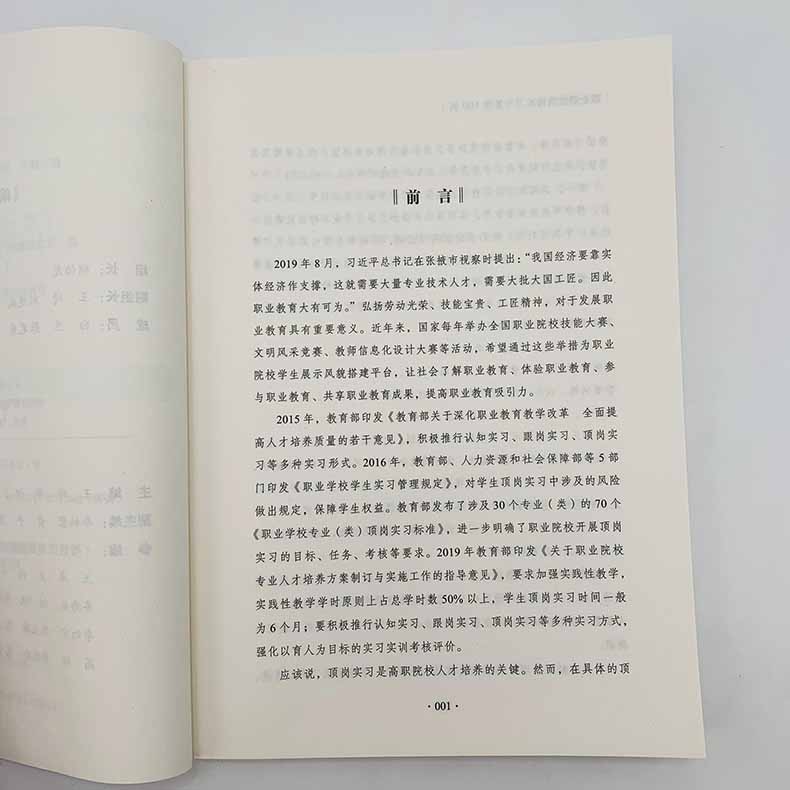 前 言
2019年8月，习近平总书记在张掖市视察时提出：“我国经济要靠实
体经济作支撑，这就需要大量专业技术人才，需要大批大国工匠。因此
职业教育大有可为。”弘扬劳动光荣、技能宝贵、工匠精神，对于发展职
业教育具有重要意义。近年来，国家每年举办全国职业院校技能大赛、
文明风采竞赛、教师信息化设计大赛等活动，希望通过这些举措为职业
院校学生展示风貌搭建平台，让社会了解职业教育、体验职业教育、参
与职业教育、共享职业教育成果，提高职业教育吸引力。
2015年，教育部印发《教育部关于深化职业教育教学改革 全面提
高人才培养质量的若干意见》，积极推行认知实习、跟岗实习、顶岗实
习等多种实习形式。2016年，教育部、人力资源和社会保障部等5部
门印发《职业学校学生实习管理规定》，对学生顶岗实习中涉及的风险
做出规定，保障学生权益。教育部发布了涉及30个专业（类）的70个
《职业学校专业（类）顶岗实习标准》，进一步明确了职业院校开展顶岗
实习的目标、任务、考核等要求。2019年教育部印发《关于职业院校
专业人才培养方案制订与实施工作的指导意见》，要求加强实践性教学，
实践性教学学时原则上占总学时数50%以上，学生顶岗实习时间一般
为6个月；要积极推行认知实习、跟岗实习、顶岗实习等多种实习方式，
强化以育人为目标的实习实训考核评价。
应该说，顶岗实习是高职院校人才培养的关键。然而，在具体的顶
·001·